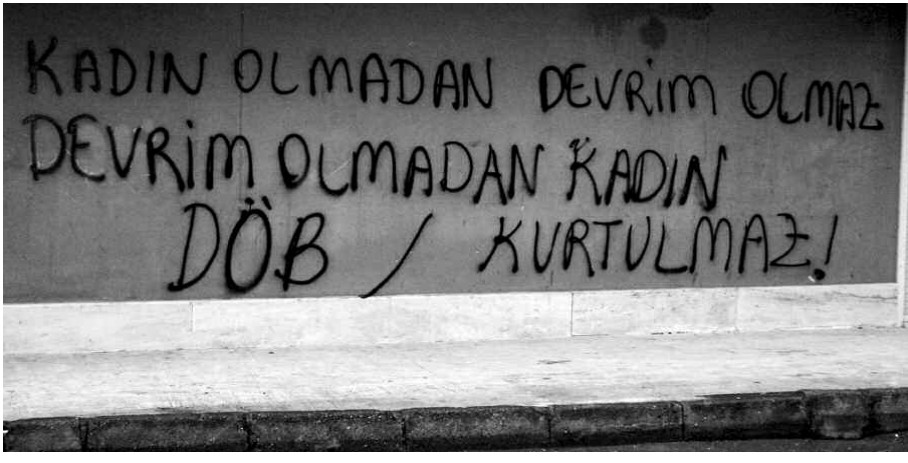 KADIN OLMADAN DEVRİM OLMAZ
DEVRİM OLMADAN KADIN
DÖB / KURTULMAZ!